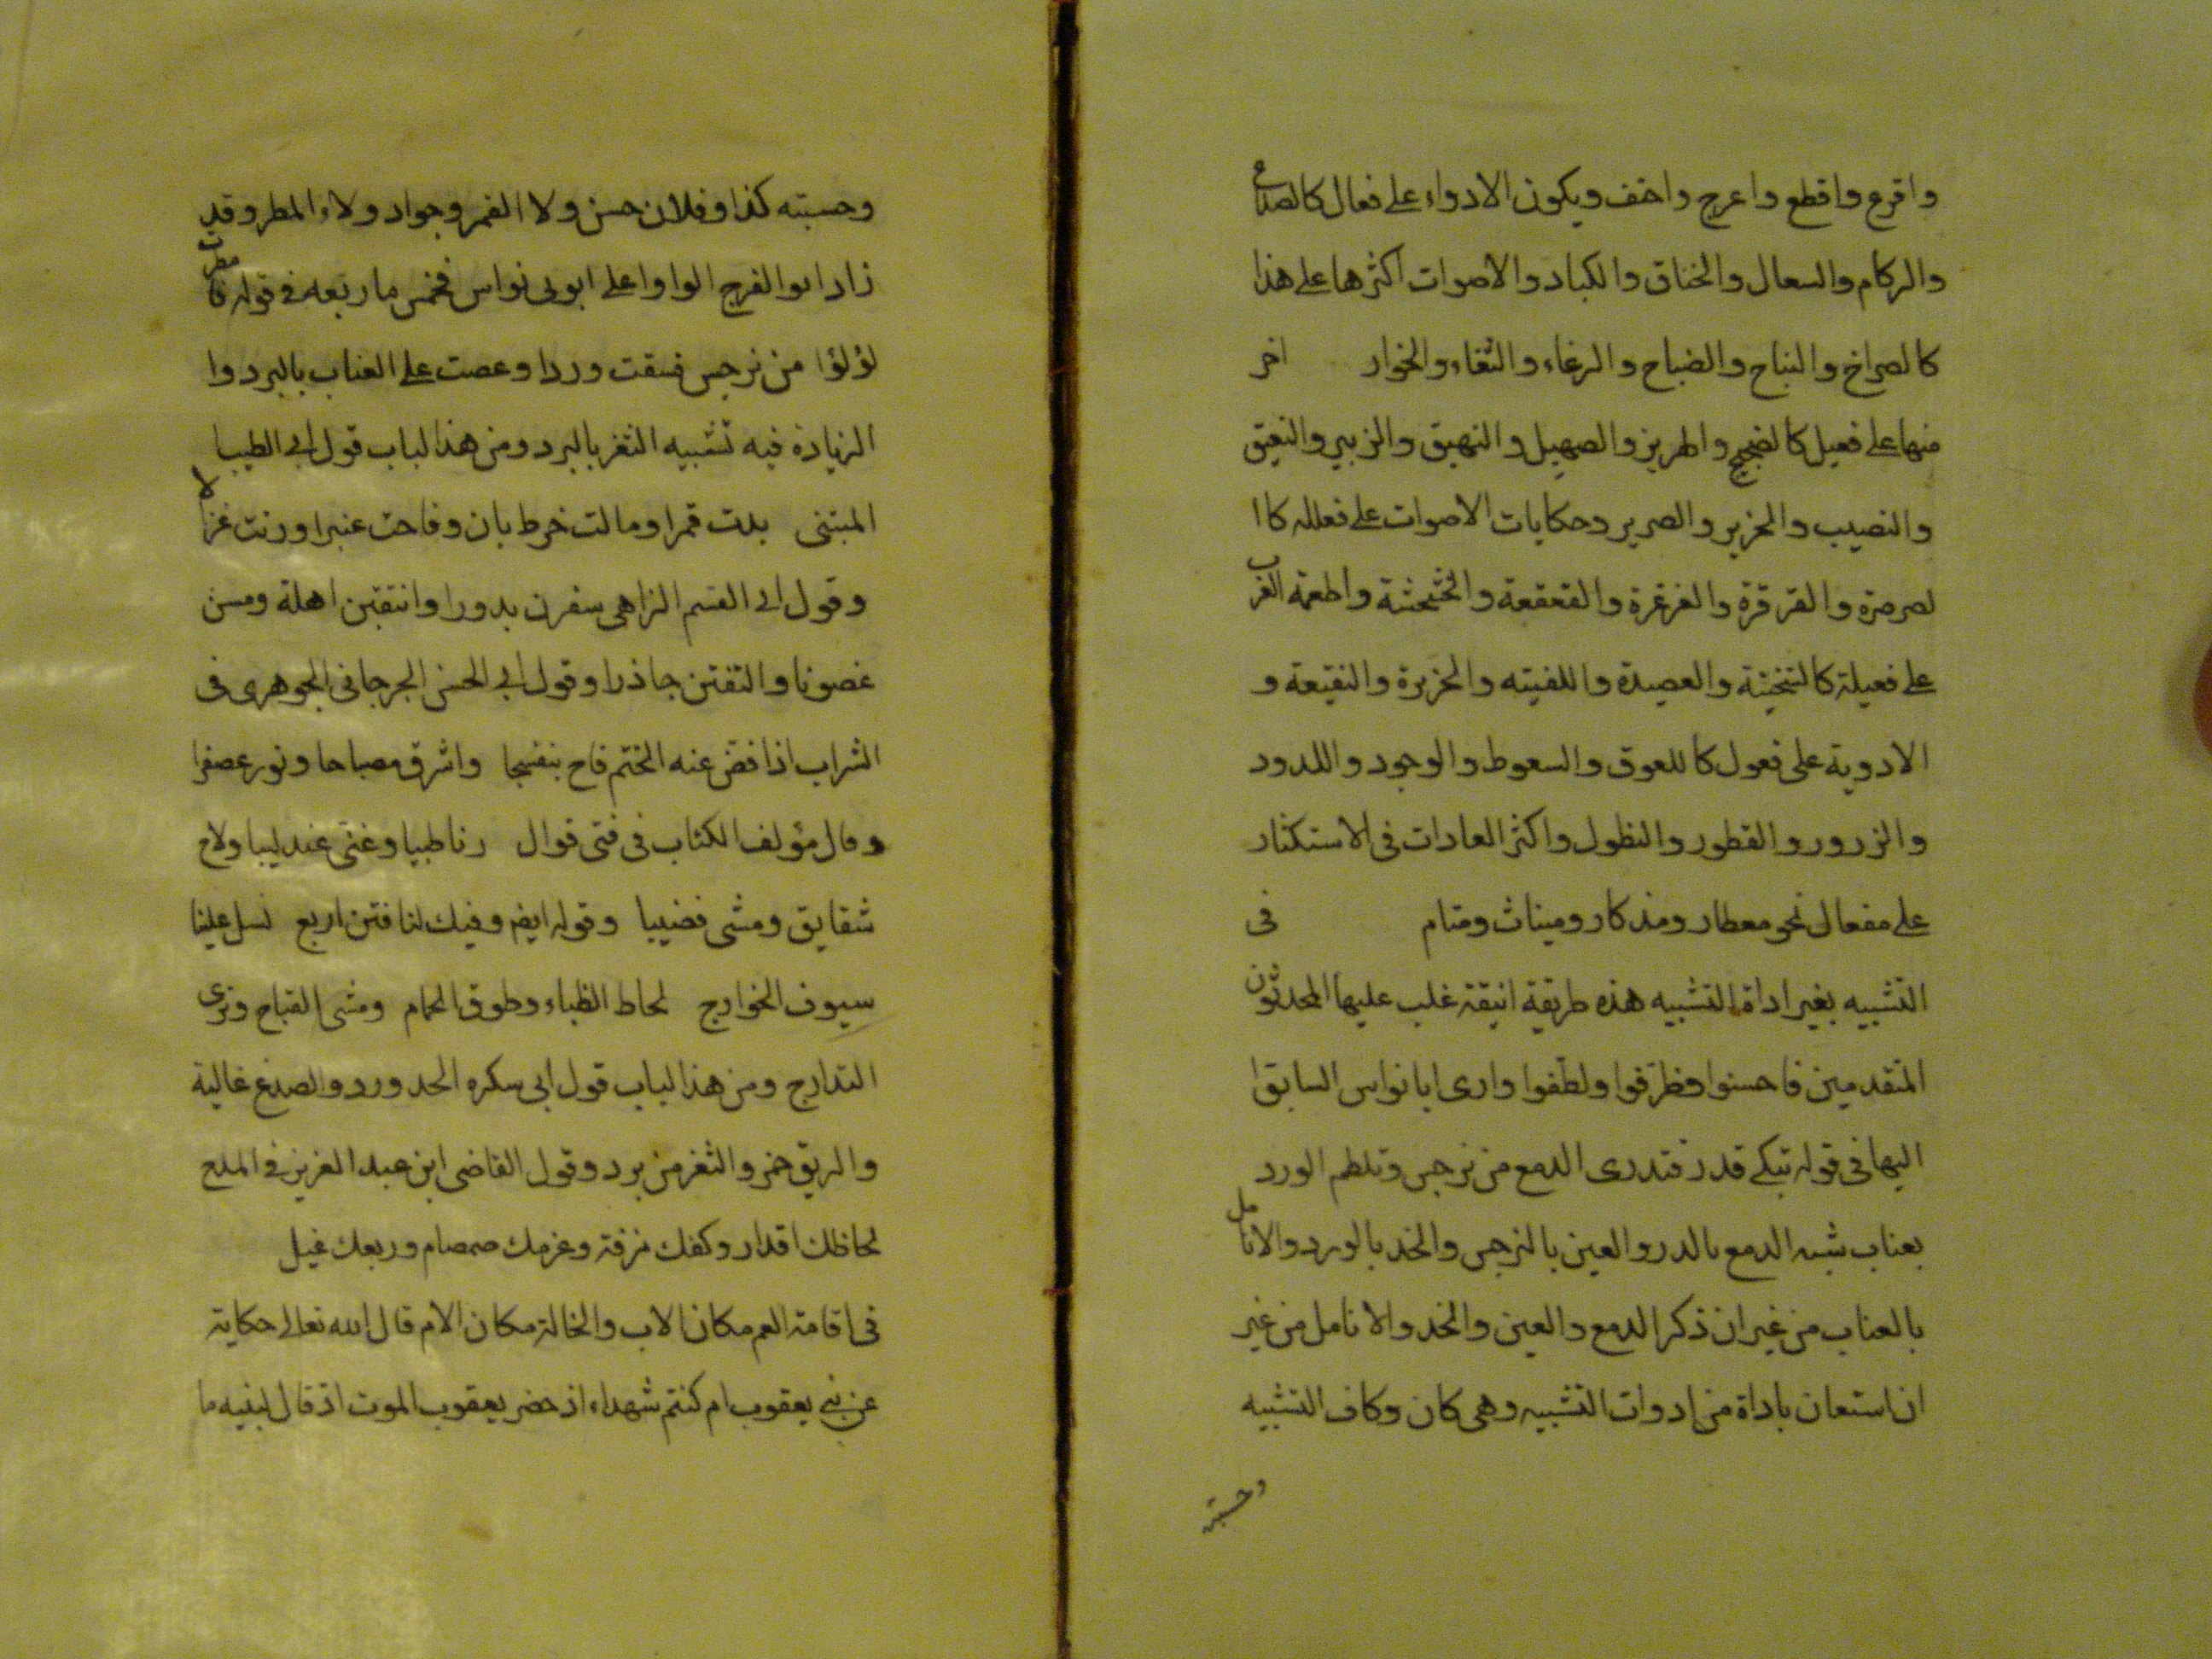 واقرع واقطع واعرج واخنف ويكون الادواء على فعال كالصداع
والزكام والسعال والخناق والكباد والاصوات اكثرها على هذا
كالصراخ والنباح والضباح والرغاء والثغاء والخوار اخر
منها على فعيل كالضجيج والهريز والصهيل والنهيق والزبير والنعيق
والنصيب والخرير والصرير وحكايات الاصوات على فعلله كا ا
لصرصرة والقرقرة والغرغرة والقعقعة والخشخشة واطعمة العرب
على فعيلة كالسخينة والعصيدة واللفيته والحزيرة والنقيعة و
الادوية على فعول كاللعوق والسعوط والوجود واللدود
والزرور والقطور والنظول واكثر العادات فى الاستكثار
على مفعال نحو معطار ومذكار وميناث ومتام فى
التشبيه بغير اداة التشبيه هذه طريقة انيقة غلب عليها المحدثون
المتقدمين فاحسنوا وظرفوا ولطفوا وارى ابا نواس السابق ا
اليها فى قوله تبكى فتدرى الدمع من نرجس وتلطم الورد
بعناب شبه الدمع بالدر والعين بالنرجس والخد بالورد والانامل
بالعناب من غير ان ذكر الدمع والعين والخد والانامل من غير
ان استعان باداة من ادوات التشبيه وهى كان وكاف التشبيه
وحسبته
وحسبته كذا وفلان حسن ولا القمر وجواد ولاء المطر وقد
زاد ابو الفرج الواوا على ابوبى نواس فخمس ما ربعه فى قوله فامطرت
لؤلؤا من نرجس فسقت وردا وعصت على العناب بالبرد وا
الزيادة فيه تشبيه الثغر بالبرد ومن هذا لباب قول ابى الطيب ا
المبتنى بدت قمرا ومالت خوط بان وفاحت عنبرا ورنت غزالا
وقول ابى القسم الزاهى سفرن بدورا وانتقبن اهلة ومسن
غصونا والتفتن جاذرا وقول ابى الحسن الجرجانى الجوهرى فى
الشراب اذا فض عنه الختم فاح بنفسجا واشرق مصباحا ونور عصفرا
وقال مؤلف الكتاب فى فتى قوال رنا ظبيا وغنى عندليبا ولاح
شقايق ومشى قضيبا وقوله ايضم وفيك لنا فتن اربع تسل علينا
سيوف الخوارج لحاظ الظباء وطوق الحمام ومشى القباح وزى
التدارج ومن هذا لباب قول ابى سكره الخد ورد والصدغ غالية
والريق خمر والثغر من برد وقول القاضى ابن عبد العزيز فى المدح
لحاظك اقدار وكفك مزنة وعزمك صمصام وربعك غيل
فى اقامة العم مكان الاب والخالة مكان الام قال الله تعالى حكاية
عن بنى يعقوب ام كنتم شهداء اذ حضر يعقوب الموت اذ قال لبنيه ما